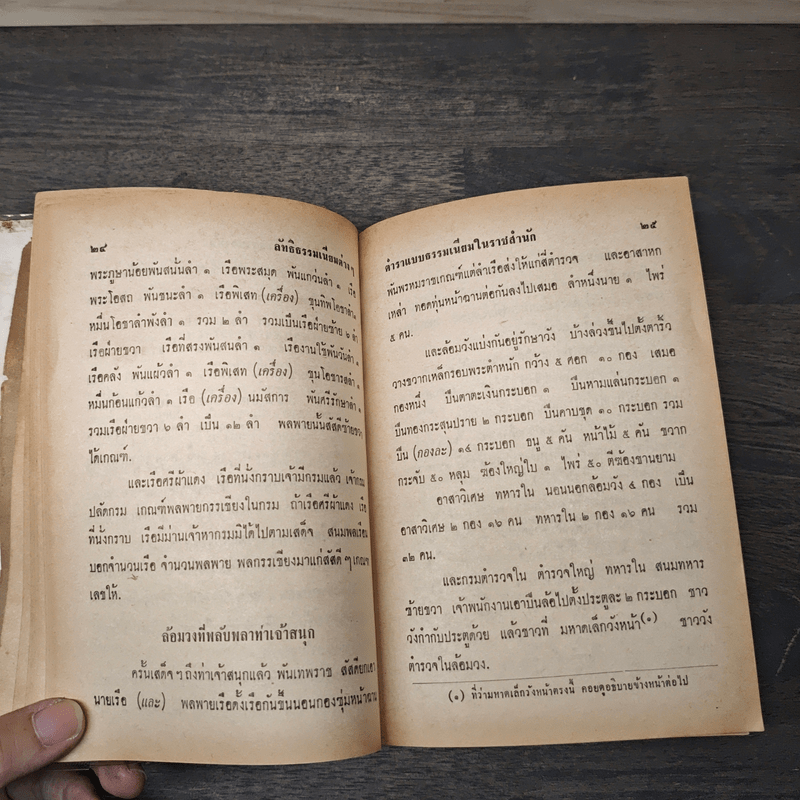 ๒๔ ลัทธิธรรมเนียมต่าง ๆ
พระภูษาน้อยพันสนั่นลำ ๑ เรือพระสมุด พันแกว่นลำ ๑ เรือ
พระโอสถ พันชนะลำ ๑ เรือพิเสท (เครื่อง) ขุนทิพโอชาลำ ๑
หมื่นโอชาลำพังลำ ๑ รวม ๒ ลำ รวมเป็นเรือฝ่ายซ้าย ๖ ลำ
เรือฝ่ายขวา เรือที่สรงพันสนลำ ๑ เรืองานใช้พันวันลำ ๑
เรือคลัง พันแผ้วลำ ๑ เรือพิเสท (เครื่อง) ขุนโอชารสลำ ๑
หมื่นก้อนแก้วลำ ๑ เรือ (เครื่อง) นมัสการ พันศรีรักษาลำ ๑
รวมเรือฝ่ายขวา ๖ ลำ เป็น ๑๒ ลำ พลพายนั้นสัสดีซ้ายขวา
ได้เกณฑ์.
และเรือศรีผ้าแดง เรือที่นั่งกราบเจ้ามีกรมแล้ว เจ้ากรม
ปลัดกรม เกณฑ์พลพายกรรเชียงในกรม ถ้าเรือศรีผ้าแดง เรือ
ที่นั่งกราบ เรือมีม่านเจ้าหากรมมิได้ไปตามเสด็จ สนมพลเรือน
บอกจำนวนเรือ จำนวนพลพาย พลกรรเชียงมาแก่สัสดี ๆ เกณฑ์
เลขให้.
ล้อมวงที่พลับพลาท่าเจ้าสนุก
ครั้นเสด็จ ๆ ถึงท่าเจ้าสนุกแล้ว พันเทพราช สัสดียกเอา
นายเรือ (และ) พลพายเรือดั้งเรือกันขึ้นนอนกองซุ่มหน้าฉาน
ตำราแบบธรรมเนียมในราชสำนัก ๒๕
พันพรหมราชเกณฑ์แต่ลำเรือส่งให้แก่สี่ตำรวจ และอาสาหก
เหล่า ทอดทุ่นหน้าฉานต่อกันลงไปเสมอ ลำหนึ่งนาย ๑ ไพร่
๕ คน.
และล้อมวังแบ่งกันอยู่รักษาวัง บ้างล่วงขึ้นไปตั้งตาริ้ว
วางขวากเหล็กรอบพระตำหนัก กว้าง ๕ ศอก ๑๐ กอง เสมอ
กองหนึ่ง ปืนตาตะเงินกระบอก ๑ ปืนหามแล่นกระบอก ๑
ปืนทองกระสุนปราย ๒ กระบอก ปืนคาบชุด ๑๐ กระบอก รวม
ปืน (กองละ) ๑๔ กระบอก ธนู ๕ คัน หน้าไม้ ๕ คัน ขวาก
กระจับ ๕๐ หลุม ฆ้องใหญ่ใบ ๑ ไพร่ ๕๐ ตีฆ้องขานยาม
อาสาวิเศษ ทหารใน นอนนอกล้อมวัง ๔ กอง เป็น
อาสาวิเศษ ๒ กอง ๑๖ คน ทหารใน ๒ กอง ๑๖ คน รวม
๓๒ คน.
และกรมตำรวจใน ตำรวจใหญ่ ทหารใน สนมทหาร
ซ้ายขวา เจ้าพนักงานเอาปืนล้อไปตั้งประตูละ ๒ กระบอก ชาว
วังกำกับประตูด้วย แล้วชาวที่ มหาดเล็กวังหน้า(๑) ชาววัง
ตำรวจในล้อมวง.
(๑) ที่ว่ามหาดเล็กวังหน้าตรงนี้ คอยดูอธิบายข้างหน้าต่อไป